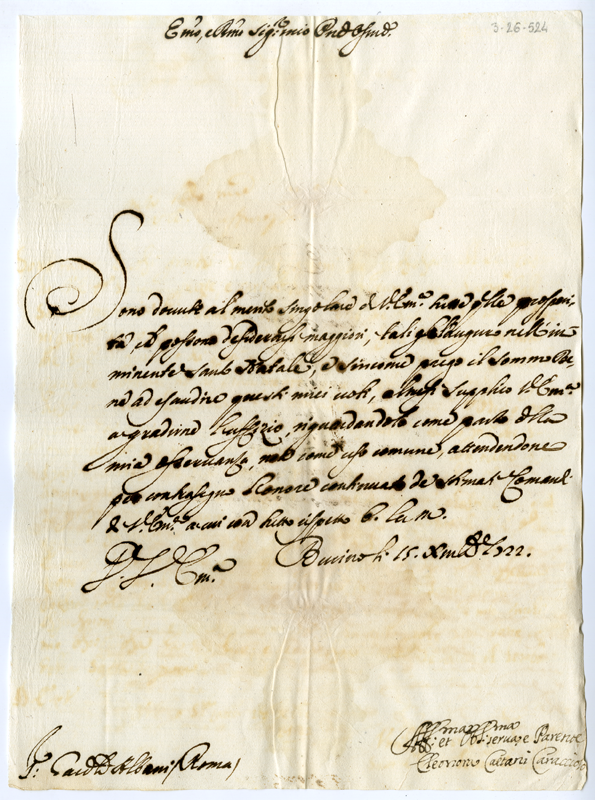 Emo, e Rmo Sig.r mio Pnd.e Osnd.e
3-26-524
Sono dovute al merito singolare di V. Em.a tutte q.lle prosperi-
tà, che possono desiderarsi maggiori, e tali gle l'auguro nell'im-
minente Santo Natale, e siccome prego il Sommo Be-
ne ad esaudire questi miei voti, altresì supplico V. Em.a
a gradirne l'uffizio, riguardandolo come parto della
mia osservanza, non come uso comune, attendendone
per contrasegno l'onore continuato de stimat.mi Comandi
di V. Em.a a cui con tutto rispetto b. le m.
D. V. Em.a Bucino li 15. Xmbre 1722.
Aff.ma
et Osserva.e Parente
Eleonora Caetani Caracciolo
S.r Card.le Albani (Roma)